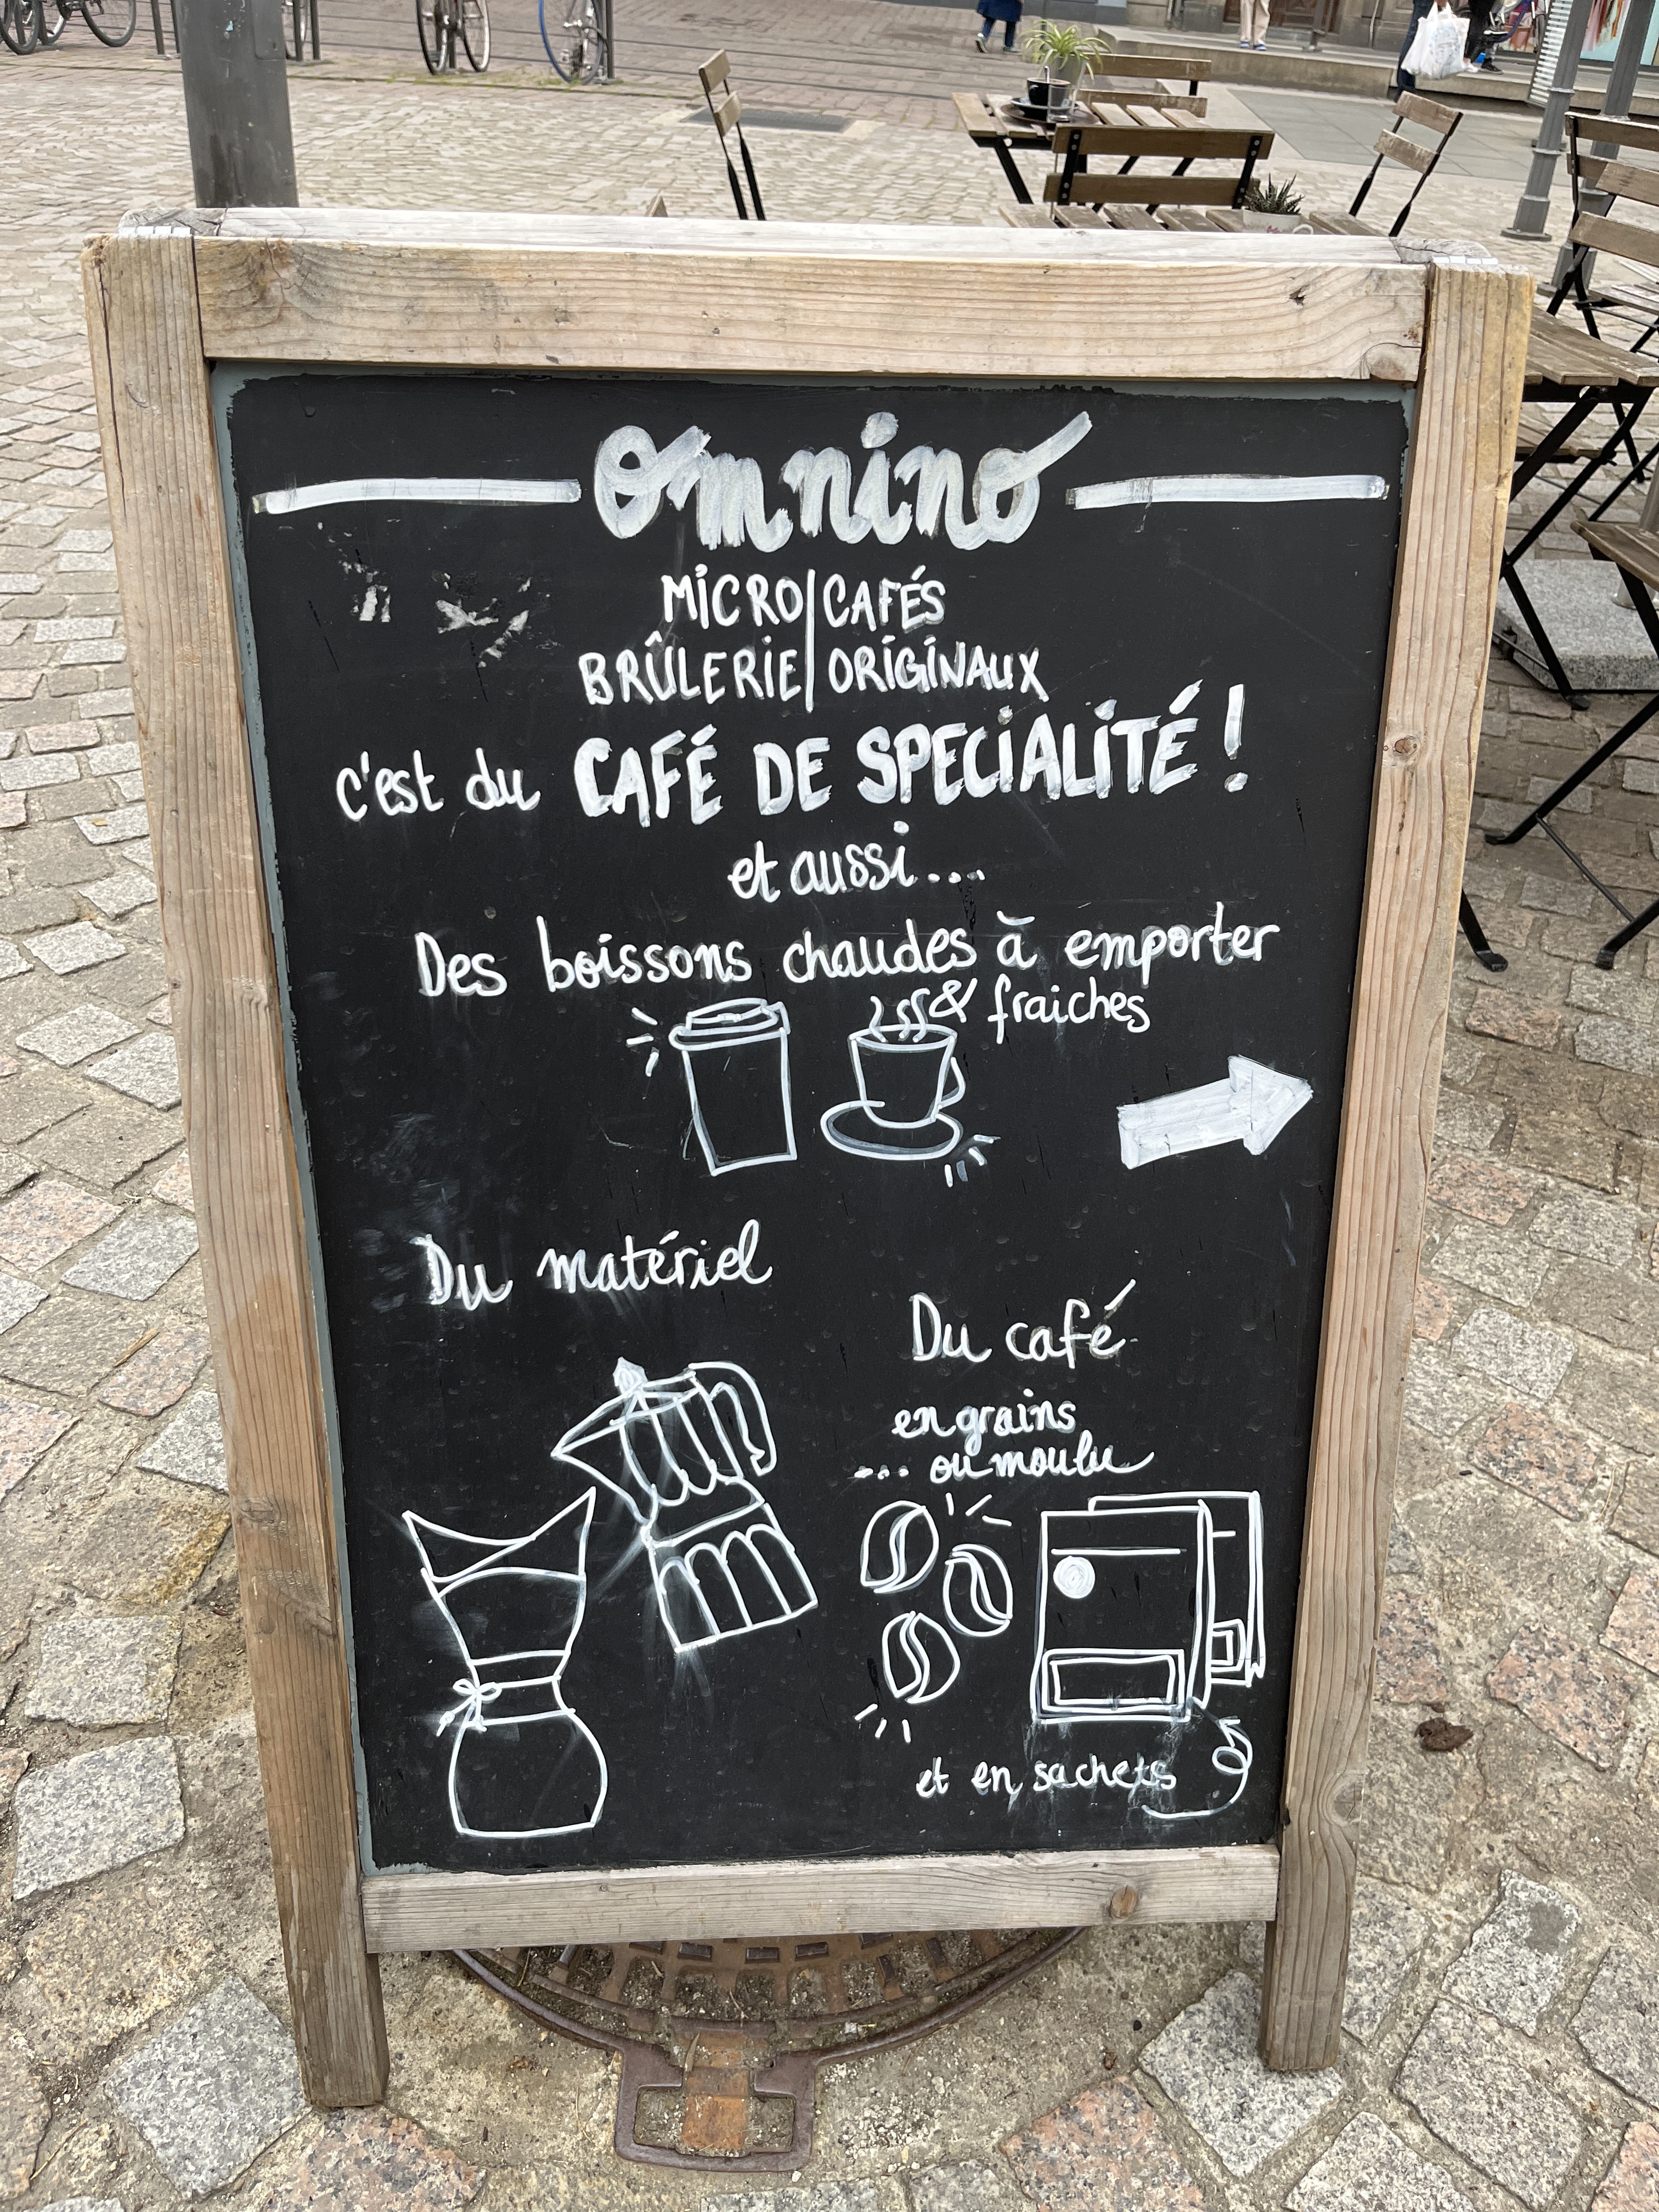 Omnino
MICRO|CAFÉS
BRÛLERIE|ORIGINAUX
c'est du CAFÉ DE SPECIALITÉ !
et aussi....
Des boissons chaudes à emporter
& fraiches
Du matériel
Du café
en grains
... ou moulu
et en sachets